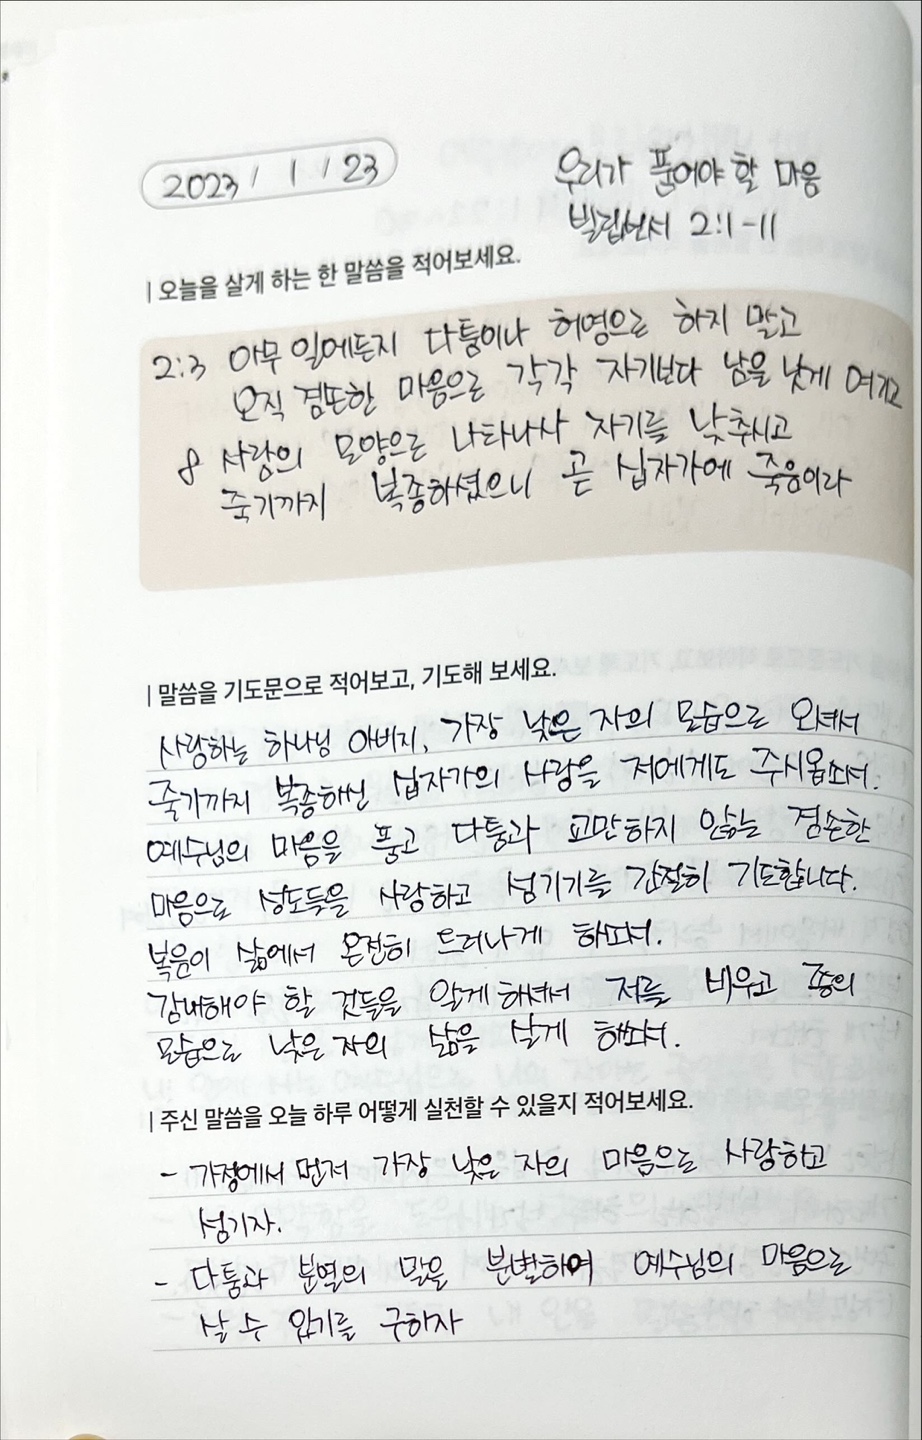 2023 / 1 / 23
우리가 품어야 할 마음
빌립보서 2:1-11
오늘을 살게 하는 한 말씀을 적어보세요.
2:3 아무 일에든지 다툼이나 허영으로 하지 말고
오직 겸손한 마음으로 각각 자기보다 남을 낫게 여기고
8 사람의 모양으로 나타나사 자기를 낮추시고
죽기까지 복종하셨으니 곧 십자가에 죽음이라
말씀을 기도문으로 적어보고, 기도해 보세요.
사랑하는 하나님 아버지, 가장 낮은 자의 모습으로 오셔서
죽기까지 복종하신 십자가의 사랑을 저에게도 주시옵소서.
예수님의 마음을 품고 다툼과 교만하지 않는 겸손한
마음으로 성도들을 사랑하고 섬기기를 간절히 기도합니다.
복음이 삶에서 온전히 드러나게 하소서.
감내해야 할 것들을 알게 하셔서 저를 비우고 종의
모습으로 낮은 자의 삶을 살게 하소서.
주신 말씀을 오늘 하루 어떻게 실천할 수 있을지 적어보세요.
- 가정에서 먼저 가장 낮은 자의 마음으로 사랑하고
섬기자.
- 다툼과 분열의 말을 분별하여 예수님의 마음으로
살 수 있기를 구하자